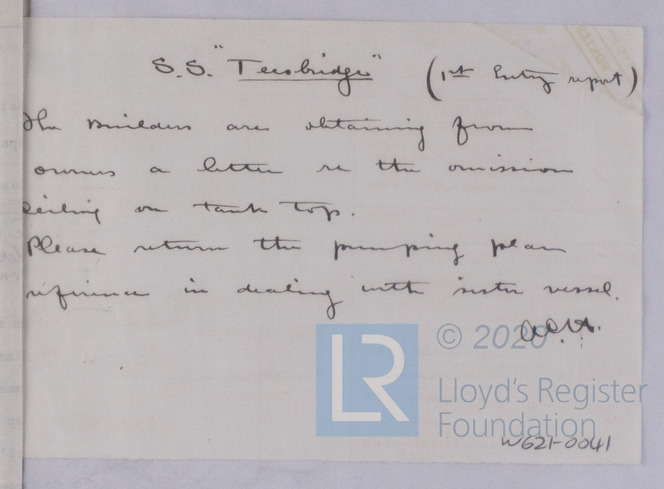 S.S. "Teesbridge" (1st Entry report)
The Builders are obtaining from
owners a letter re the omission
ceiling on tank top.
Please return the pumping plan
reference in dealing with sister vessel.
LR
© 2020
Lloyd's Register
Foundation
W621-0041